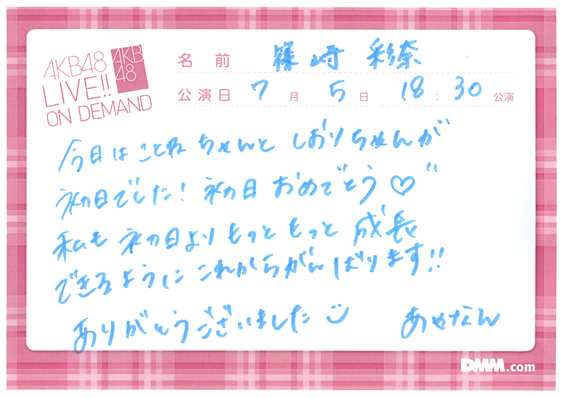 AKB48
LIVE!!
ON DEMAND
AKB
48
名前 篠崎 彩奈
公演日 7月 5日 18:30 公演
今日は ことね ちゃんと しおりちゃんが
初日でした! 初日 おめでとう♡
私も 初日より もっと もっと 成長
できるように これからがんばります!!
ありがとうございました
あやなん
DMM.com